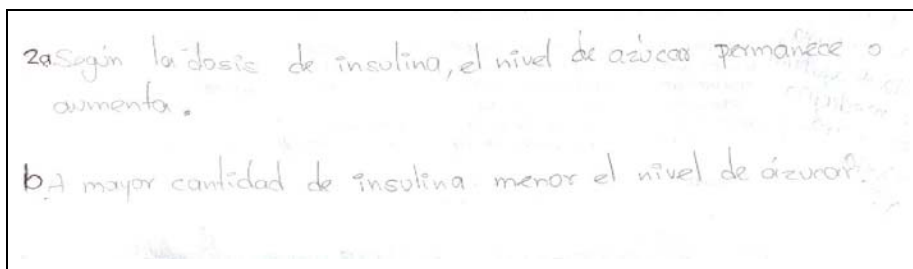 2a Según la dosis de insulina, el nivel de azúcar permanece o
aumenta.
b. A mayor cantidad de insulina menor el nivel de ázucar.